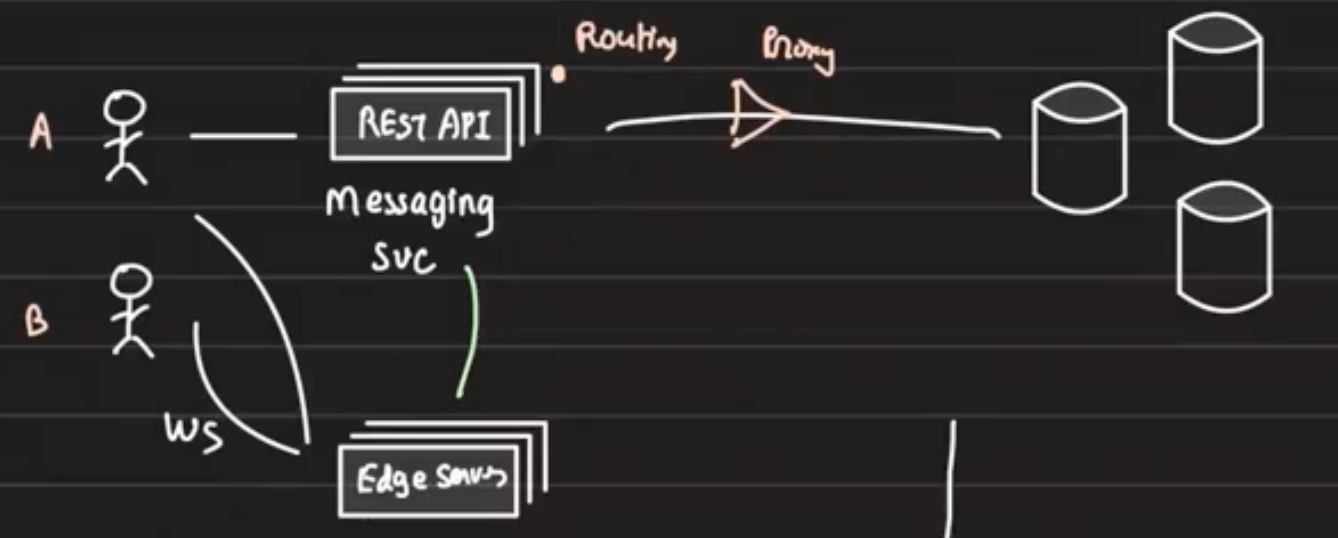 Routing
Proxy
A
REST API
Messaging
SVC
B
WS
Edge Servers